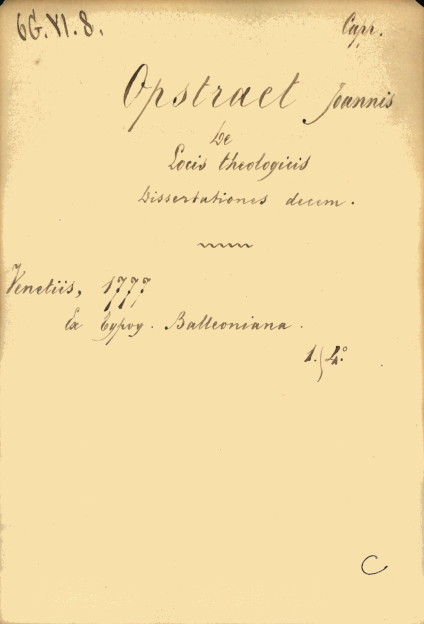 6G.VI.8.
Capr.
Opstraet Joannis
De
Locis theologicis
Dissertationes decem.
Venetiis, 1777
Ex Typog. Balleoniana.
1. 4.º
C